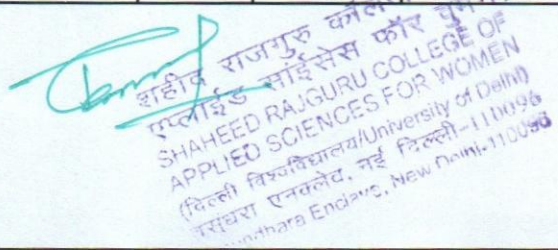 शहीद राजगुरु कॉलेज
एप्लाईड साईंसेस फॉर
SHAHEED RAJGURU COLLEGE OF
APPLIED SCIENCES FOR WOMEN
(दिल्ली विश्वविद्यालय/University of Delhi)
वसुंधरा एनक्लेव, नई दिल्ली-110096
Enclave, New Delhi-110096